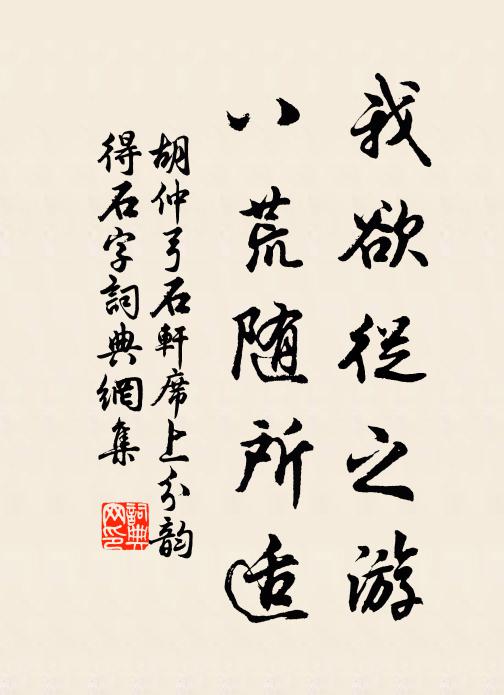 我欲從之游
八荒随所适
胡仲弓石軒席上分韵
得石字詞典網集
詞典网印